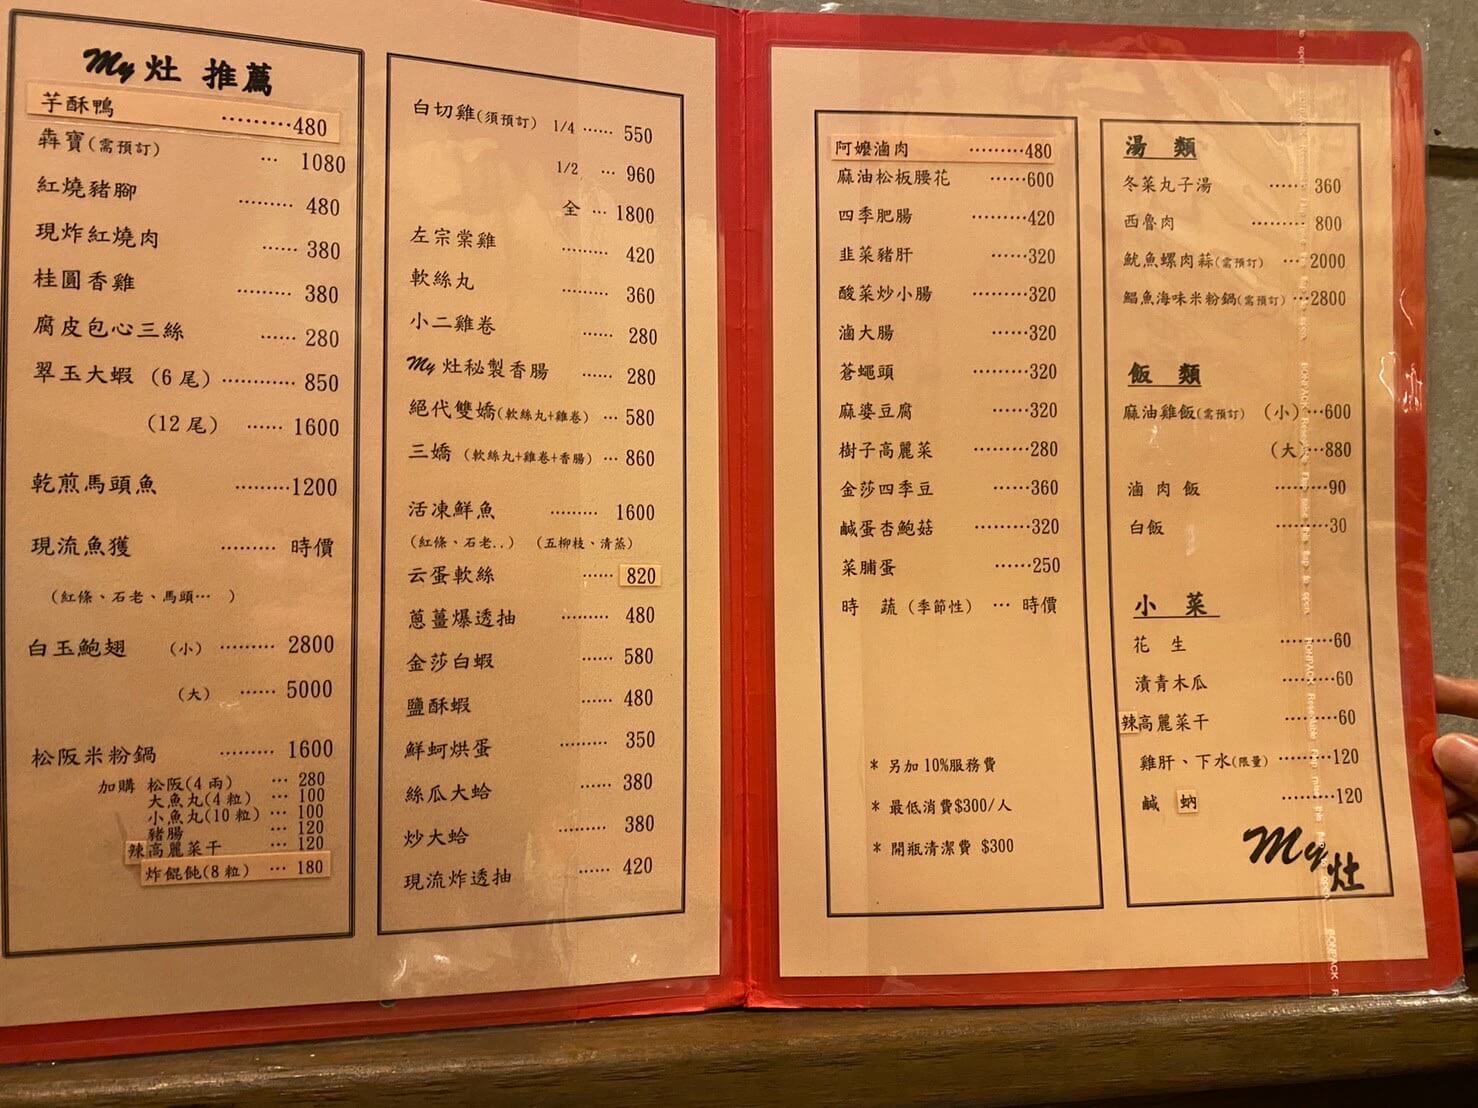 My灶 推薦
芋酥鴨 ………480
犇寶(需預訂) … 1080
紅燒豬腳 ……… 480
現炸紅燒肉 …… 380
桂圓香雞 ……… 380
腐皮包心三絲 …… 280
翠玉大蝦 (6尾) ………… 850
(12尾) …… 1600
乾煎馬頭魚 ………1200
現流魚獲 ……… 時價
(紅條、石老、馬頭… )
白玉鮑翅 (小) ……… 2800
(大) …… 5000
松阪米粉鍋 ……… 1600
加購 松阪(4兩) … 280
大魚丸(4粒) … 100
小魚丸(10粒) … 100
豬腸 … 120
辣高麗菜干 … 120
炸餛飩(8粒) … 180
白切雞(須預訂) 1/4 …… 550
1/2 … 960
全 … 1800
左宗棠雞 ……… 420
軟絲丸 ……… 360
小二雞卷 …… 280
My 灶秘製香腸 …… 280
絕代雙嬌(軟絲丸+雞卷) … 580
三嬌 (軟絲丸+雞卷+香腸) … 860
活凍鮮魚 ……… 1600
(紅條、石老..) (五柳枝、清蒸)
云蛋軟絲 …… 820
蔥薑爆透抽 ……… 480
金莎白蝦 …… 580
鹽酥蝦 …… 480
鮮蚵烘蛋 ……… 350
絲瓜大蛤 …… 380
炒大蛤 ……… 380
現流炸透抽 …… 420
阿嬤滷肉 ………480
麻油松板腰花 ……600
四季肥腸 ………420
韭菜豬肝 ……320
酸菜炒小腸 ………320
滷大腸 ……320
蒼蠅頭 ………320
麻婆豆腐 ……320
樹子高麗菜 ………280
金莎四季豆 ……360
鹹蛋杏鮑菇 ………320
菜脯蛋 ……250
時 蔬(季節性) … 時價
* 另加10%服務費
* 最低消費$300/人
* 開瓶清潔費 $300
湯 類
冬菜丸子湯 …… 360
西魯肉 ……… 800
魷魚螺肉蒜(需預訂) … 2000
鯧魚海味米粉鍋(需預訂) …2800
飯 類
麻油雞飯(需預訂) (小)…600
(大)…880
滷 肉 飯 ………90
白飯 ………30
小 菜
花 生 ………60
漬青木瓜 ………60
辣高麗菜干 ………60
雞肝、下水(限量) ………120
鹹 蚋 ………120
My灶